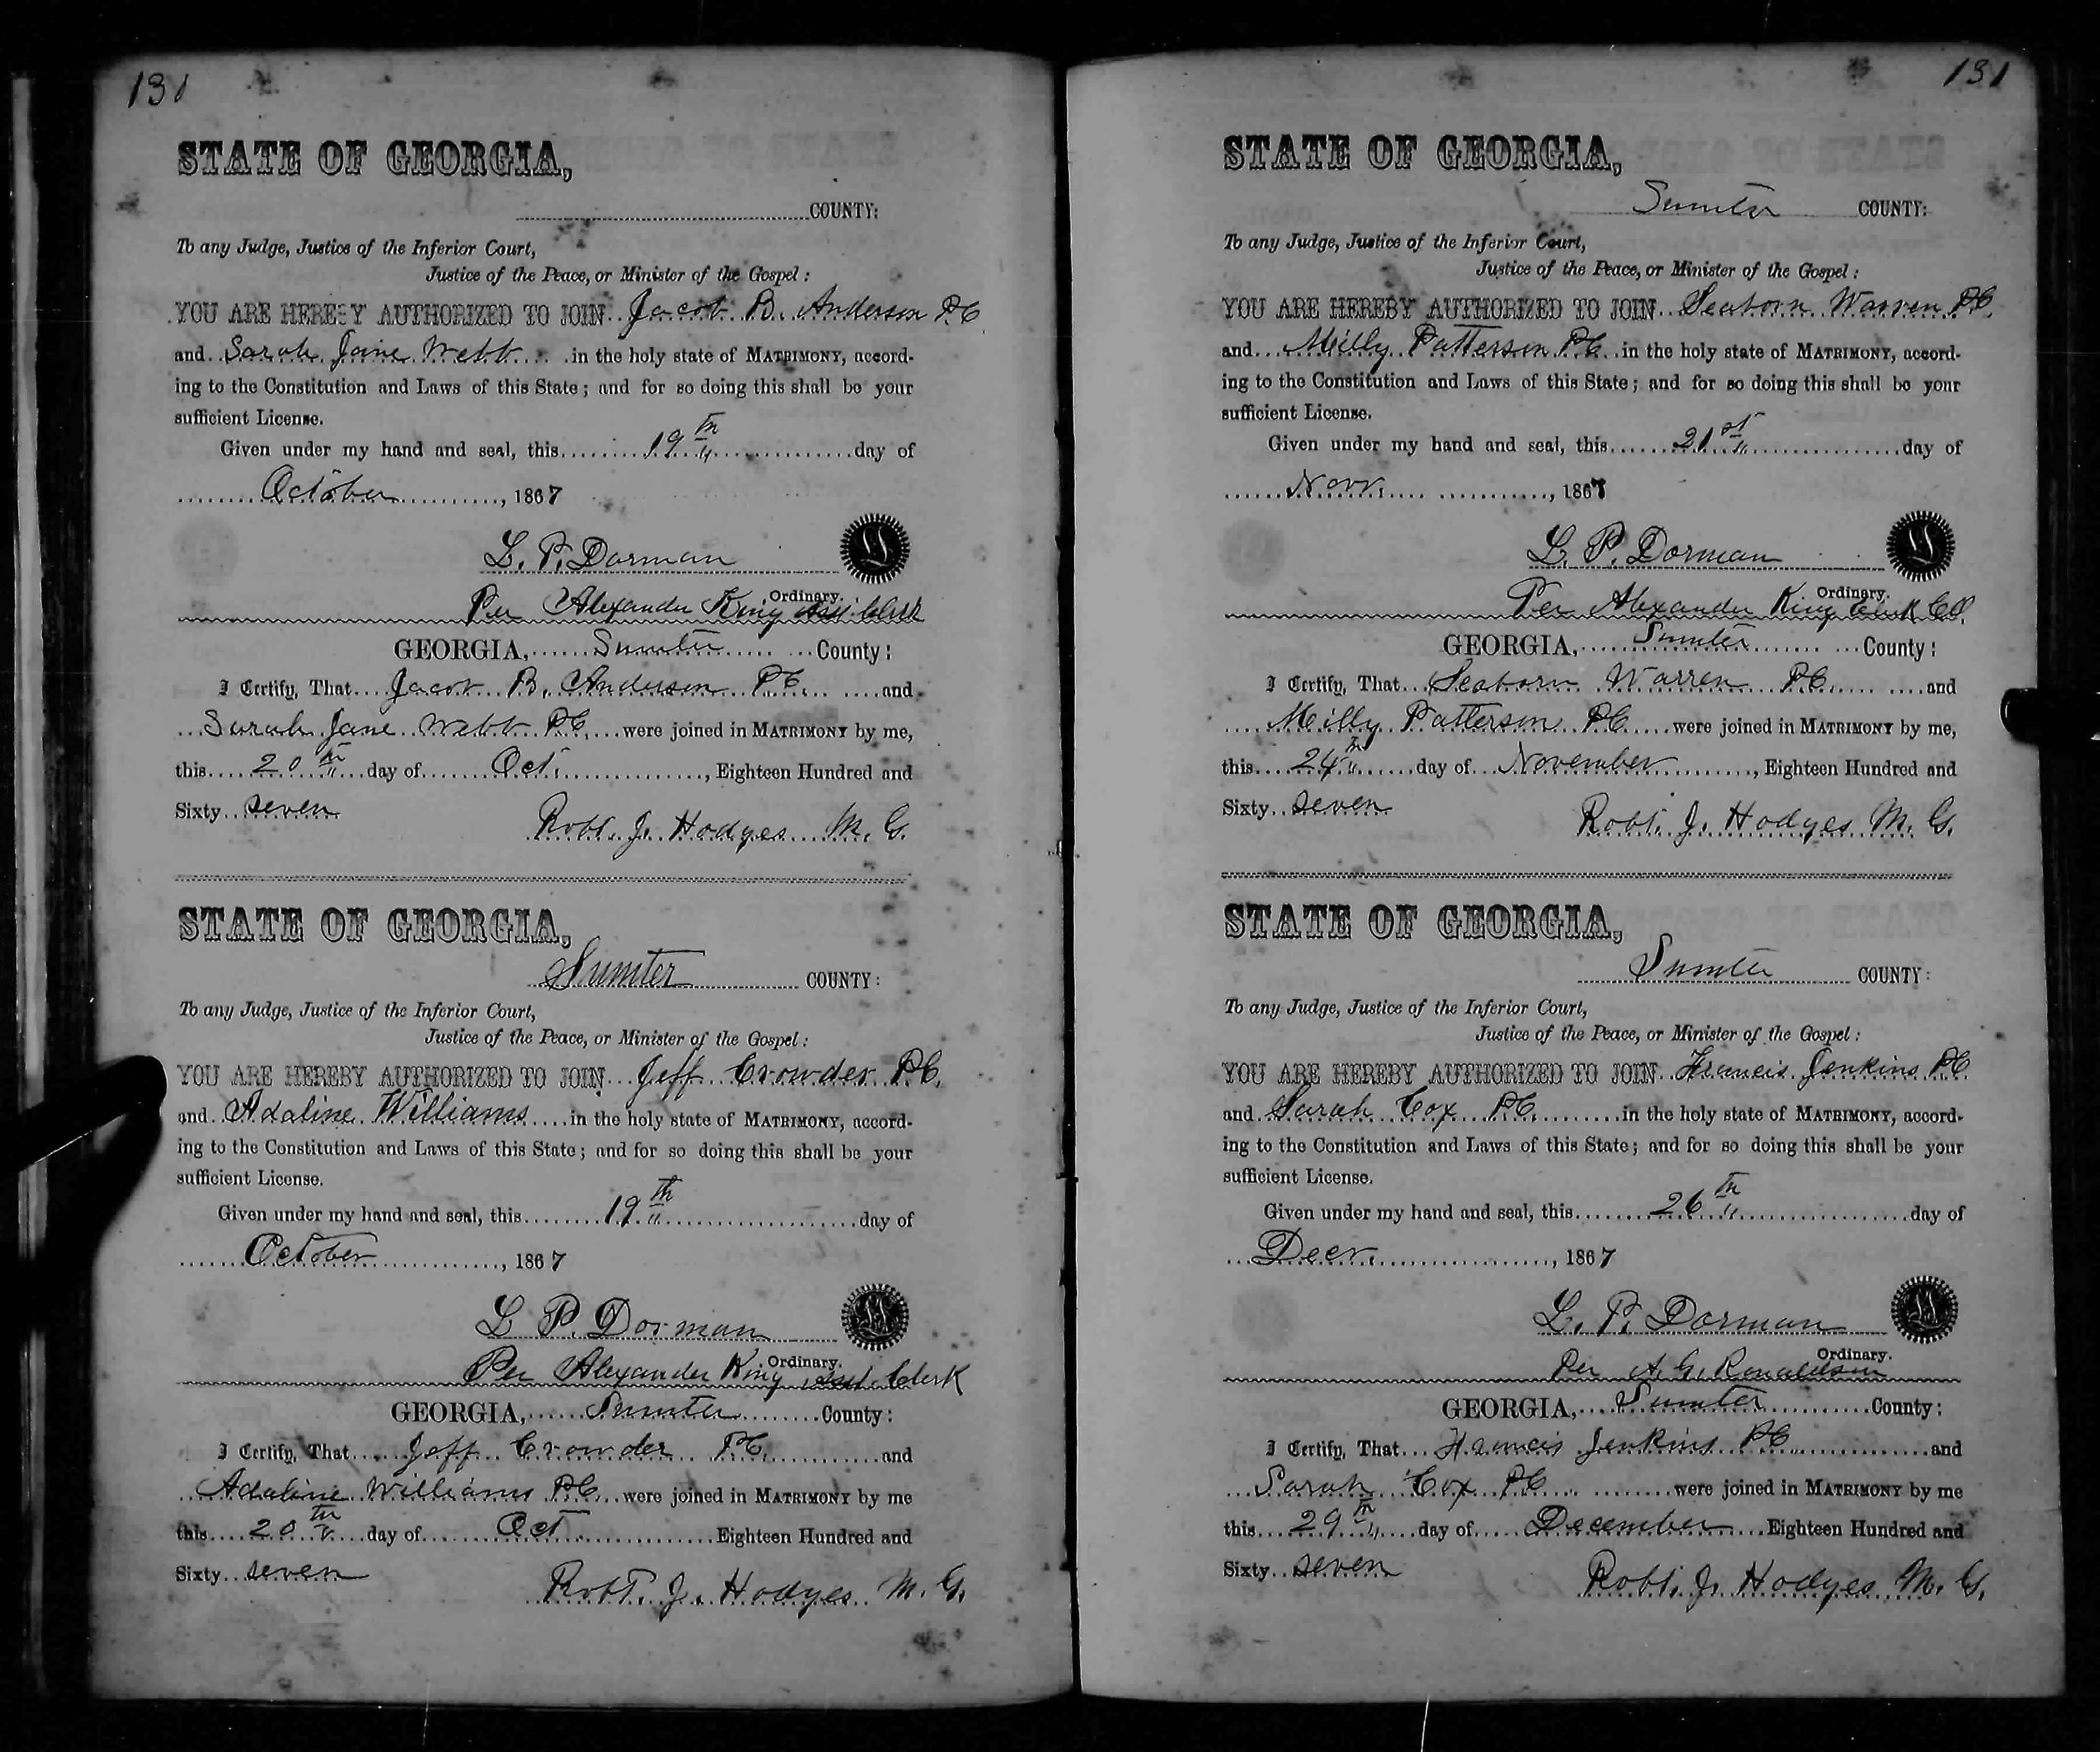 131
STATE OF GEORGIA,
COUNTY:
To any Judge, Justice of the Inferior Court,
Justice of the Peace, or Minister of the Gospel:
YOU ARE HEREBY AUTHORIZED TO JOIN Jacob B. Anderson PC
and Sarah Jane Webb in the holy state of MATRIMONY, accord-
ing to the Constitution and Laws of this State; and for so doing this shall be your
sufficient License.
Given under my hand and seal, this 19th day of
October, 1867
L. P. Dorman
Ordinary.
Per Alexander King Asst Clerk
GEORGIA, Sumter County:
I Certify, That Jacob B. Anderson PC and
Sarah Jane Webb PC were joined in MATRIMONY by me,
this 20th day of Oct., Eighteen Hundred and
Sixty seven
Robt. J. Hodges M. G.
STATE OF GEORGIA,
Sumter COUNTY:
To any Judge, Justice of the Inferior Court,
Justice of the Peace, or Minister of the Gospel:
YOU ARE HEREBY AUTHORIZED TO JOIN Jeff Crowder PC.
and Adaline Williams in the holy state of MATRIMONY, accord-
ing to the Constitution and Laws of this State; and for so doing this shall be your
sufficient License.
Given under my hand and seal, this 19th day of
October, 1867
L P. Dorman
Ordinary.
Per Alexander King Asst Clerk
GEORGIA, Sumter County:
I Certify, That Jeff Crowder PC and
Adaline Williams PC were joined in MATRIMONY by me
this 20th day of Oct Eighteen Hundred and
Sixty seven
Robt. J. Hodges M. G.
131
STATE OF GEORGIA,
Sumter COUNTY:
To any Judge, Justice of the Inferior Court,
Justice of the Peace, or Minister of the Gospel:
YOU ARE HEREBY AUTHORIZED TO JOIN Seaborn Warren PC.
and Milly Patterson PC in the holy state of MATRIMONY, accord-
ing to the Constitution and Laws of this State; and for so doing this shall be your
sufficient License.
Given under my hand and seal, this 21st day of
Novr., 1867
L. P. Dorman
Ordinary.
Per Alexander King Clerk CO.
GEORGIA, Sumter County:
I Certify, That Seaborn Warren PC and
Milly Patterson PC were joined in MATRIMONY by me,
this 24th day of November, Eighteen Hundred and
Sixty seven
Robt. J. Hodges M. G.
STATE OF GEORGIA,
Sumter COUNTY:
To any Judge, Justice of the Inferior Court,
Justice of the Peace, or Minister of the Gospel:
YOU ARE HEREBY AUTHORIZED TO JOIN Francis Jenkins PC
and Sarah Cox PC in the holy state of MATRIMONY, accord-
ing to the Constitution and Laws of this State; and for so doing this shall be your
sufficient License.
Given under my hand and seal, this 26th day of
Decr., 1867
L. P. Dorman
Ordinary.
Per A. G. Ronaldson
GEORGIA, Sumter County:
I Certify, That Francis Jenkins PC and
Sarah Cox PC were joined in MATRIMONY by me
this 29th day of December Eighteen Hundred and
Sixty seven
Robt. J. Hodges M. G.